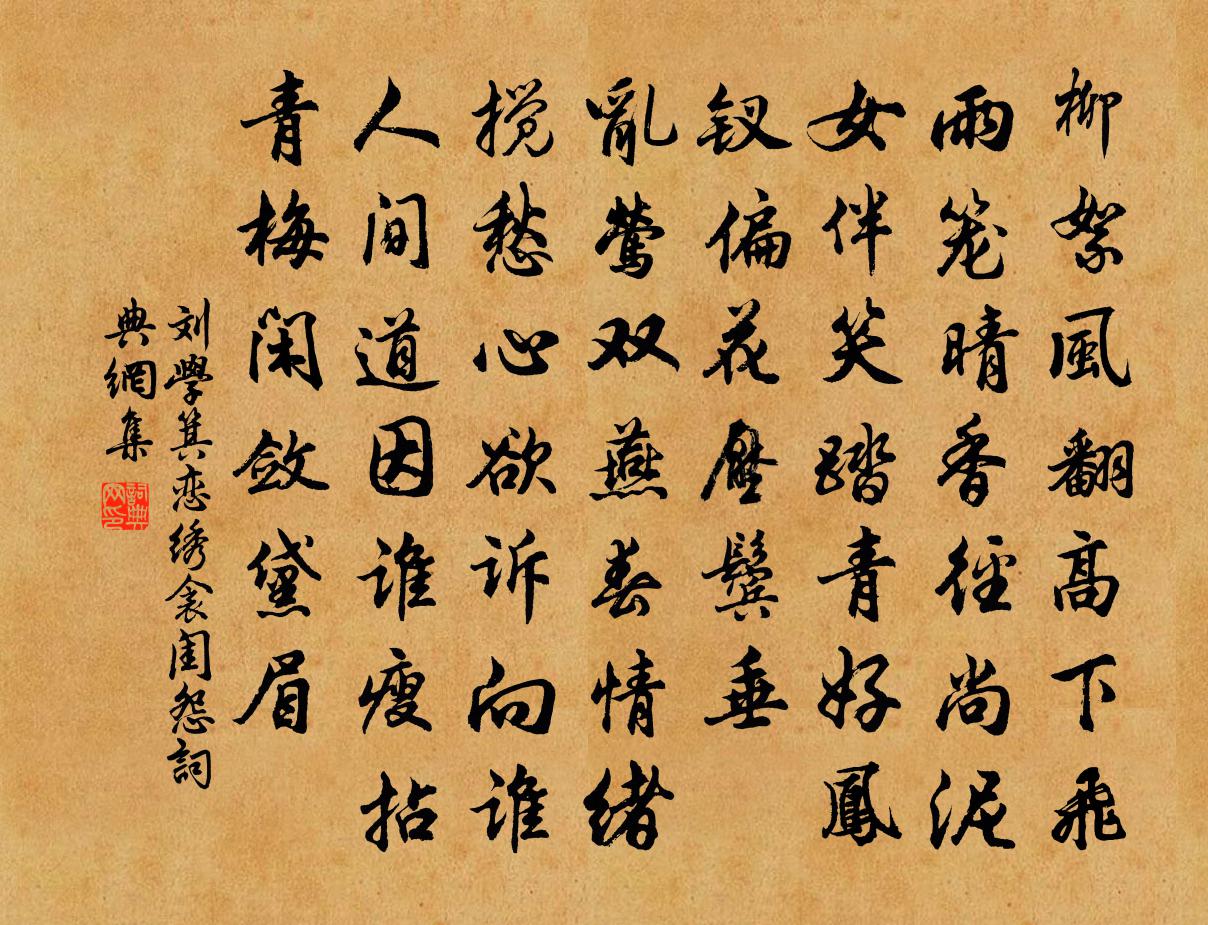 柳絮風翻高下飛
雨笼晴香径尚泥
女伴笑踏青好鳳
钗偏花壓鬓垂
亂莺双燕春情绪
搅愁心欲诉向谁
人间道因谁瘦拈
青梅闲敛黛眉
刘學箕恋绣衾闺怨詞
典網集
詞典
网印